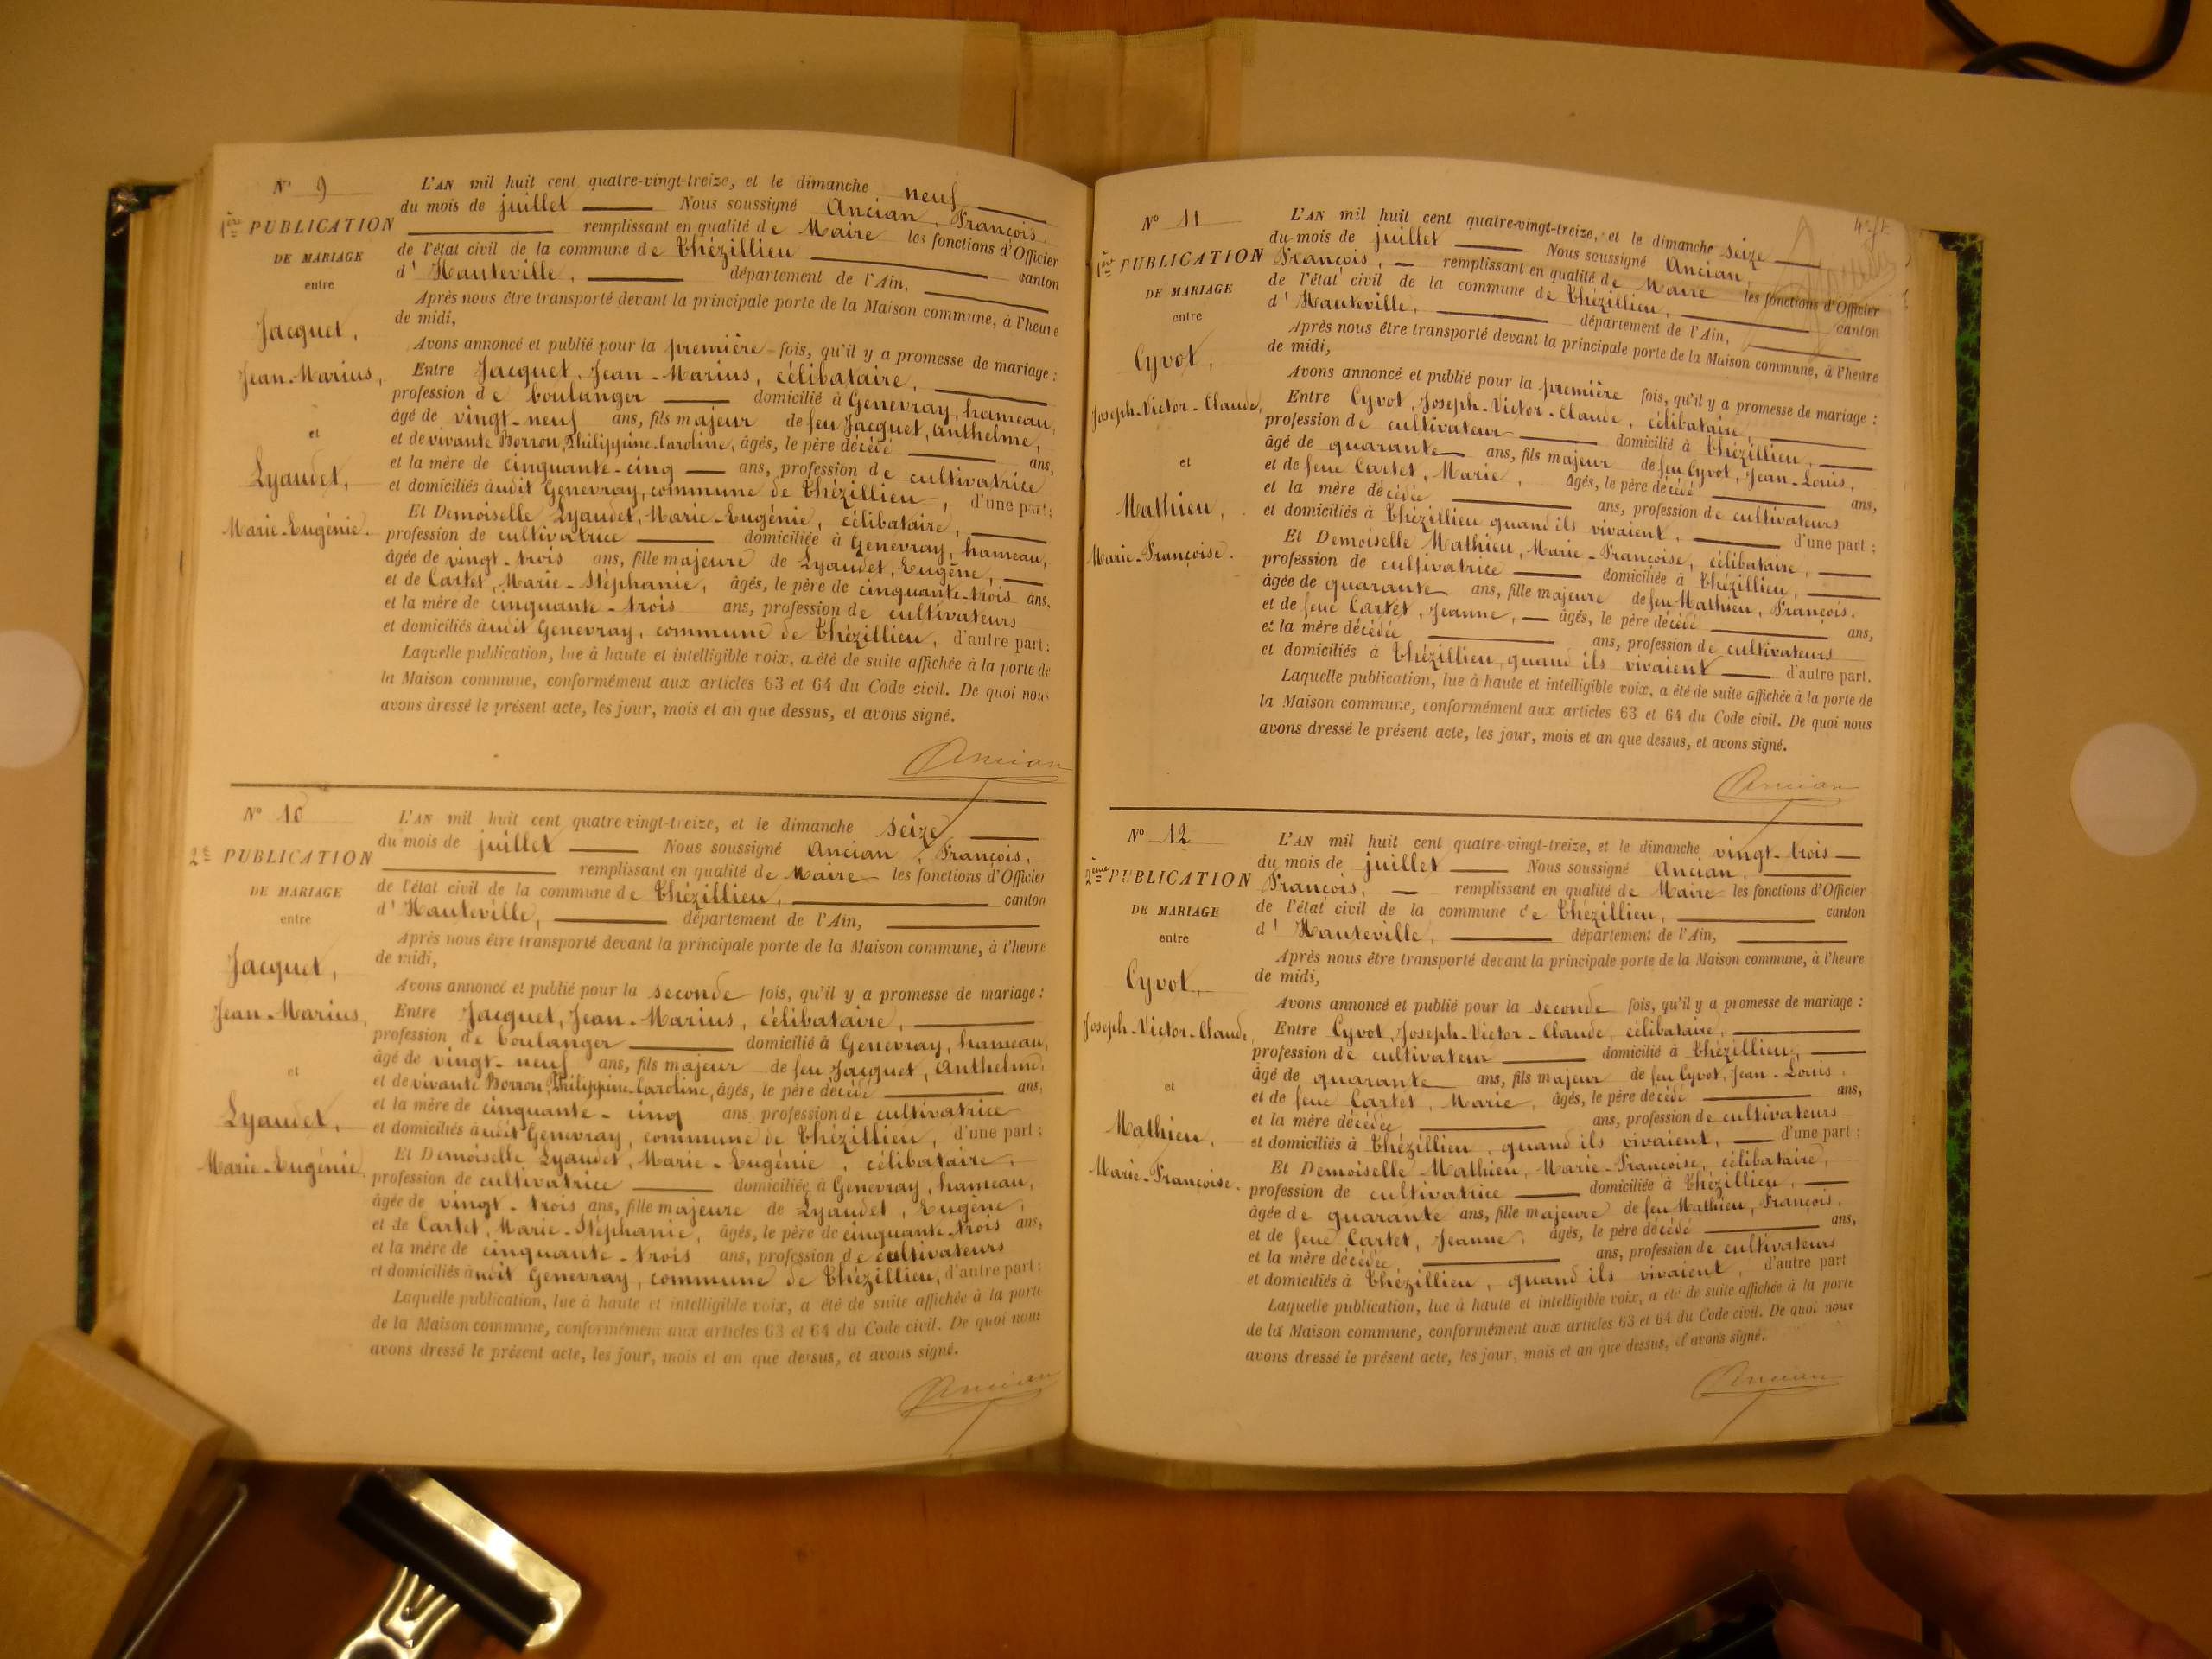 N° 9
1ère PUBLICATION
DE MARIAGE
entre
Jacquet,
Jean-Marius,
et
Lyaudet,
Marie-Eugénie.
L'AN mil huit cent quatre-vingt-treize, et le dimanche neuf
du mois de juillet Nous soussigné Ancian, François.
remplissant en qualité de Maire les fonctions d'Officier
de l'état civil de la commune de Thézillieu canton
d'Hauteville, département de l'Ain,
Après nous être transporté devant la principale porte de la Maison commune, à l'heure
de midi,
Avons annoncé et publié pour la première fois, qu'il y a promesse de mariage :
Entre Jacquet, Jean-Marius, célibataire,
profession de boulanger domicilié à Genevray, hameau,
âgé de vingt-neuf ans, fils majeur de feu Jacquet, Anthelme,
et de vivante Borron, Philippine-Caroline, âgés, le père décédé ans,
et la mère de cinquante-cinq ans, profession de cultivatrice
et domiciliés audit Genevray, commune de Thézillieu, d'une part ;
Et Demoiselle Lyaudet, Marie-Eugénie, célibataire,
profession de cultivatrice domiciliée à Genevray, hameau,
âgée de vingt-trois ans, fille majeure de Lyaudet, Eugène,
et de Cartet, Marie-Stéphanie, âgés, le père de cinquante-trois ans,
et la mère de cinquante-trois ans, profession de cultivateurs
et domiciliés audit Genevray, commune de Thézillieu, d'autre part ;
Laquelle publication, lue à haute et intelligible voix, a été de suite affichée à la porte de
la Maison commune, conformément aux articles 63 et 64 du Code civil. De quoi nous
avons dressé le présent acte, les jour, mois et an que dessus, et avons signé.
Ancian
N° 10
2e PUBLICATION
DE MARIAGE
entre
Jacquet,
Jean-Marius,
et
Lyaudet,
Marie-Eugénie.
L'AN mil huit cent quatre-vingt-treize, et le dimanche seize
du mois de juillet Nous soussigné Ancian, François.
remplissant en qualité de Maire les fonctions d'Officier
de l'état civil de la commune de Thézillieu, canton
d'Hauteville, département de l'Ain,
Après nous être transporté devant la principale porte de la Maison commune, à l'heure
de midi,
Avons annoncé et publié pour la seconde fois, qu'il y a promesse de mariage :
Entre Jacquet, Jean-Marius, célibataire,
profession de boulanger domicilié à Genevray, hameau,
âgé de vingt-neuf ans, fils majeur de feu Jacquet, Anthelme,
et de vivante Borron, Philippine-Caroline, âgés, le père décédé ans,
et la mère de cinquante-cinq ans, profession de cultivatrice
et domiciliés audit Genevray, commune de Thézillieu, d'une part ;
Et Demoiselle Lyaudet, Marie-Eugénie, célibataire,
profession de cultivatrice domiciliée à Genevray, hameau,
âgée de vingt-trois ans, fille majeure de Lyaudet, Eugène,
et de Cartet, Marie-Stéphanie, âgés, le père de cinquante-trois ans,
et la mère de cinquante-trois ans, profession de cultivateurs
et domiciliés audit Genevray, commune de Thézillieu, d'autre part ;
Laquelle publication, lue à haute et intelligible voix, a été de suite affichée à la porte
de la Maison commune, conformément aux articles 63 et 64 du Code civil. De quoi nous
avons dressé le présent acte, les jour, mois et an que dessus, et avons signé.
Ancian
N° 11
1ère PUBLICATION
DE MARIAGE
entre
Cyvot,
Joseph-Victor-Claude,
et
Mathieu,
Marie-Françoise.
L'AN mil huit cent quatre-vingt-treize, et le dimanche seize
du mois de juillet Nous soussigné Ancian,
François, remplissant en qualité de Maire les fonctions d'Officier
de l'état civil de la commune de Thézillieu, canton
d'Hauteville, département de l'Ain,
Après nous être transporté devant la principale porte de la Maison commune, à l'heure
de midi,
Avons annoncé et publié pour la première fois, qu'il y a promesse de mariage :
Entre Cyvot, Joseph-Victor-Claude, célibataire,
profession de cultivateur domicilié à Thézillieu,
âgé de quarante ans, fils majeur de feu Cyvot, Jean-Louis,
et de feue Cartet, Marie, âgés, le père décédé ans,
et la mère décédée ans, profession de cultivateurs
et domiciliés à Thézillieu quand ils vivaient, d'une part ;
Et Demoiselle Mathieu, Marie-Françoise, célibataire,
profession de cultivatrice domiciliée à Thézillieu,
âgée de quarante ans, fille majeure de feu Mathieu, François.
et de feue Cartet, Jeanne, âgés, le père décédé ans,
et la mère décédée ans, profession de cultivateurs
et domiciliés à Thézillieu, quand ils vivaient d'autre part.
Laquelle publication, lue à haute et intelligible voix, a été de suite affichée à la porte de
la Maison commune, conformément aux articles 63 et 64 du Code civil. De quoi nous
avons dressé le présent acte, les jour, mois et an que dessus, et avons signé.
Ancian
N° 12
2ème PUBLICATION
DE MARIAGE
entre
Cyvot,
Joseph-Victor-Claude,
et
Mathieu,
Marie-Françoise.
L'AN mil huit cent quatre-vingt-treize, et le dimanche vingt-trois
du mois de juillet Nous soussigné Ancian,
François, remplissant en qualité de Maire les fonctions d'Officier
de l'état civil de la commune de Thézillieu, canton
d'Hauteville, département de l'Ain,
Après nous être transporté devant la principale porte de la Maison commune, à l'heure
de midi,
Avons annoncé et publié pour la seconde fois, qu'il y a promesse de mariage :
Entre Cyvot, Joseph-Victor-Claude, célibataire,
profession de cultivateur domicilié à Thézillieu,
âgé de quarante ans, fils majeur de feu Cyvot, Jean-Louis,
et de feue Cartet, Marie, âgés, le père décédé ans,
et la mère décédée ans, profession de cultivateurs
et domiciliés à Thézillieu, quand ils vivaient, d'une part ;
Et Demoiselle Mathieu, Marie-Françoise, célibataire,
profession de cultivatrice domiciliée à Thézillieu,
âgée de quarante ans, fille majeure de feu Mathieu, François,
et de feue Cartet, Jeanne, âgés, le père décédé ans,
et la mère décédée, ans, profession de cultivateurs
et domiciliés à Thézillieu, quand ils vivaient, d'autre part
Laquelle publication, lue à haute et intelligible voix, a été de suite affichée à la porte
de la Maison commune, conformément aux articles 63 et 64 du Code civil. De quoi nous
avons dressé le présent acte, les jour, mois et an que dessus, et avons signé.
Ancian